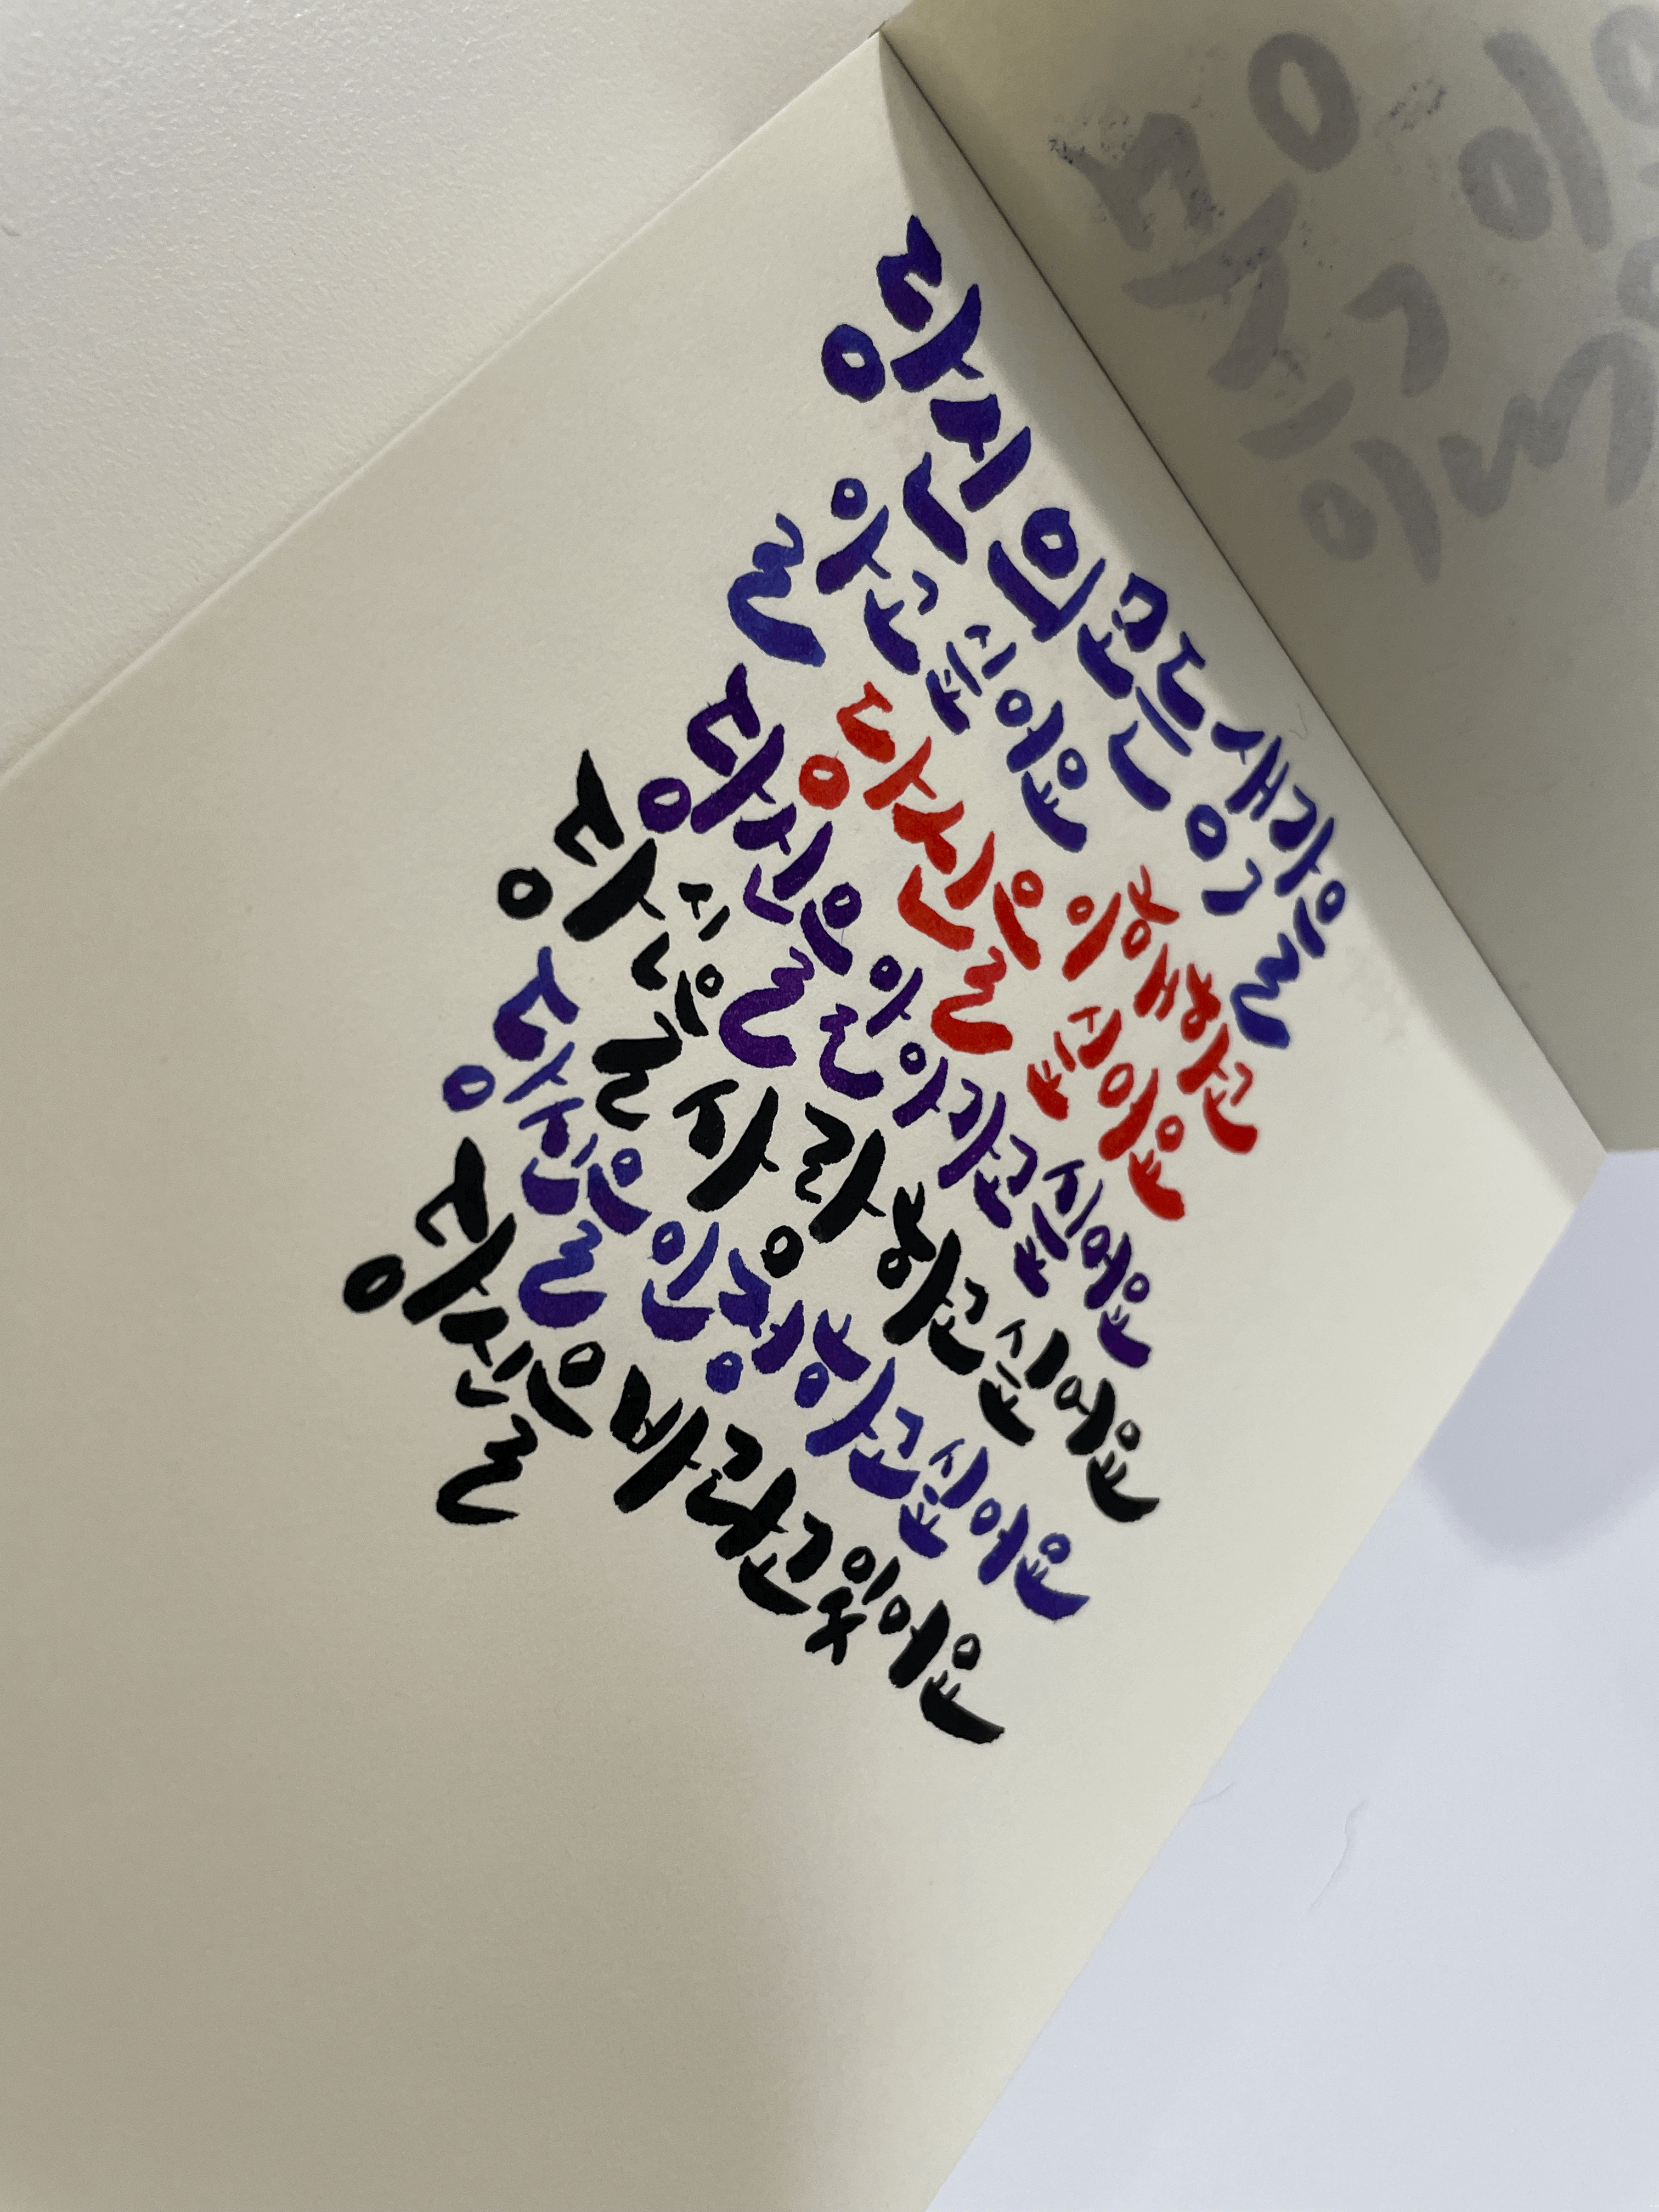 당신의 모든 생각을
알고 싶어요
당신을 이해하고 싶어요
당신을 알아가고 싶어요
당신을 사랑하고 싶어요
당신을 인정하고 싶어요
당신을 바라고 있어요